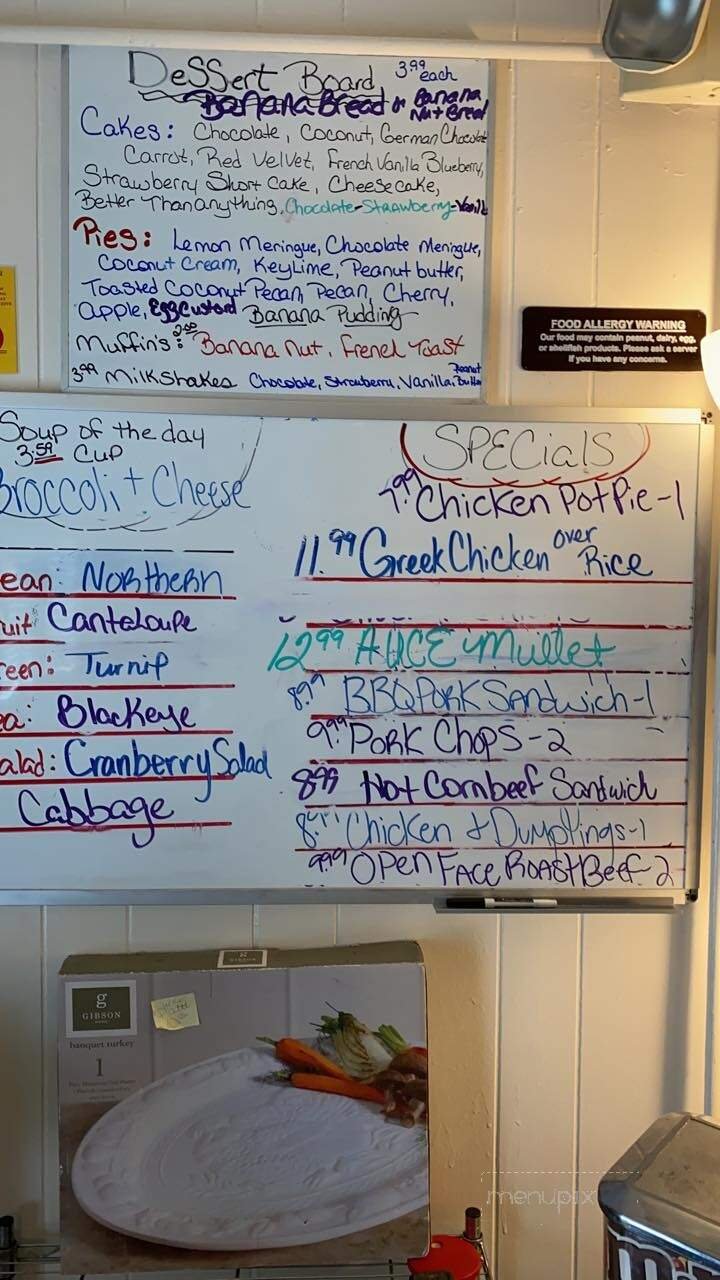 Dessert Board 3.99 each
Banana Bread or Banana Nut Bread
Cakes: Chocolate, Coconut, German Chocolate
Carrot, Red Velvet, French Vanilla Blueberry,
Strawberry Short Cake, Cheesecake,
Better Than anything, Chocolate-Strawberry-Vanill
Pies: Lemon Meringue, Chocolate Meringue,
Coconut Cream, Key Lime, Peanut butter,
Toasted Coconut Pecan, Pecan, Cherry,
apple, Egg Custard Banana Pudding
Muffin's: Banana Nut, French Toast
3.99 Milkshakes Chocolate, Strawberry, Vanilla, Peanut Butter
FOOD ALLERGY WARNING
Our food may contain peanut, dairy, egg,
or shellfish products. Please ask a server
if you have any concerns.
Soup of the day
3.59 Cup
Broccoli + Cheese
ean: Northern
uit: Cantaloupe
reen: Turnip
ea: Blackeye
alad: Cranberry Salad
Cabbage
SPECials
7.99 Chicken Pot Pie-1
11.99 Greek Chicken over Rice
12.99 AUCE Mullet
8.99 BBQ Pork Sandwich-1
9.99 Pork Chops-2
8.99 Hot Cornbeef Sandwich
Chicken & Dumplings-1
9.99 Open Face Roast Beef-2
g
GIBSON
banquet turkey
1
menupix